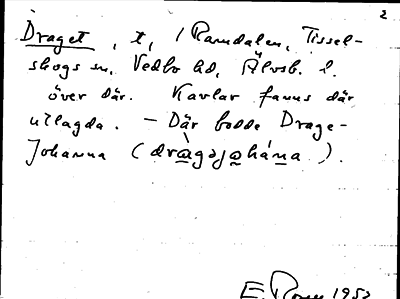 2
Draget, t, i Ramdalen, Tissel-
skogs sn, Vedbo hd, Älvsb. l.
över där. Kavlar fanns där
utlagda. – Där bodde Drage-
Johanna (dràgəjohána).
E. Rosen 1952